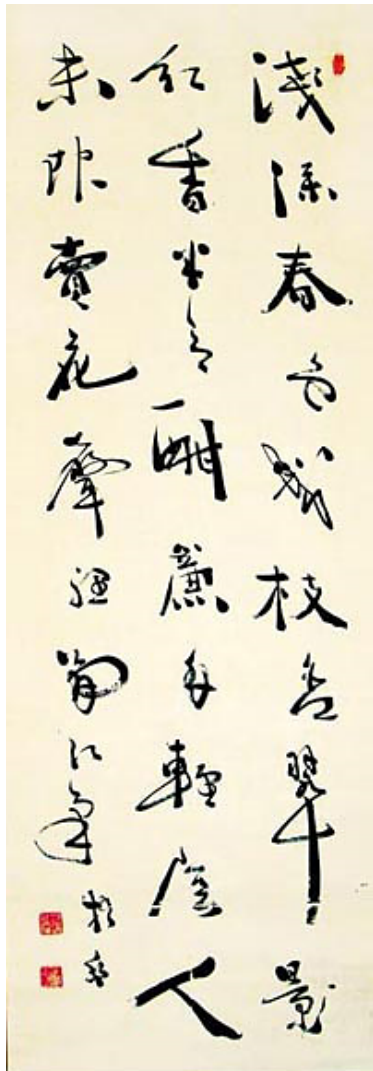 淺深春色幾枝含翠影
紅香半欲酣簾外輕陰人
未起賣花聲裡夢江南